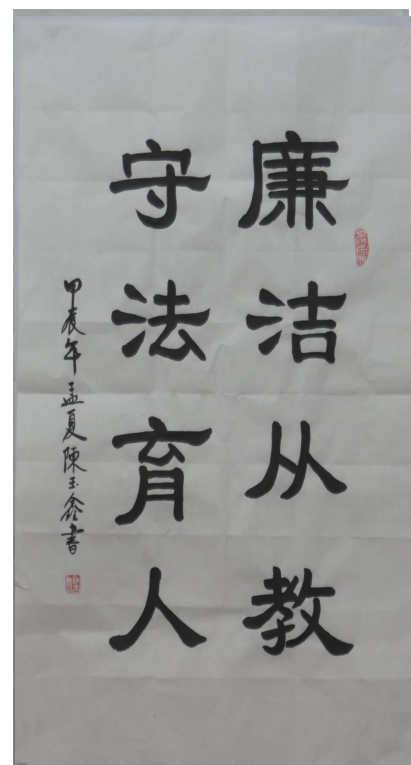 廉洁从教
守法育人
甲辰年孟夏陳玉鑫書